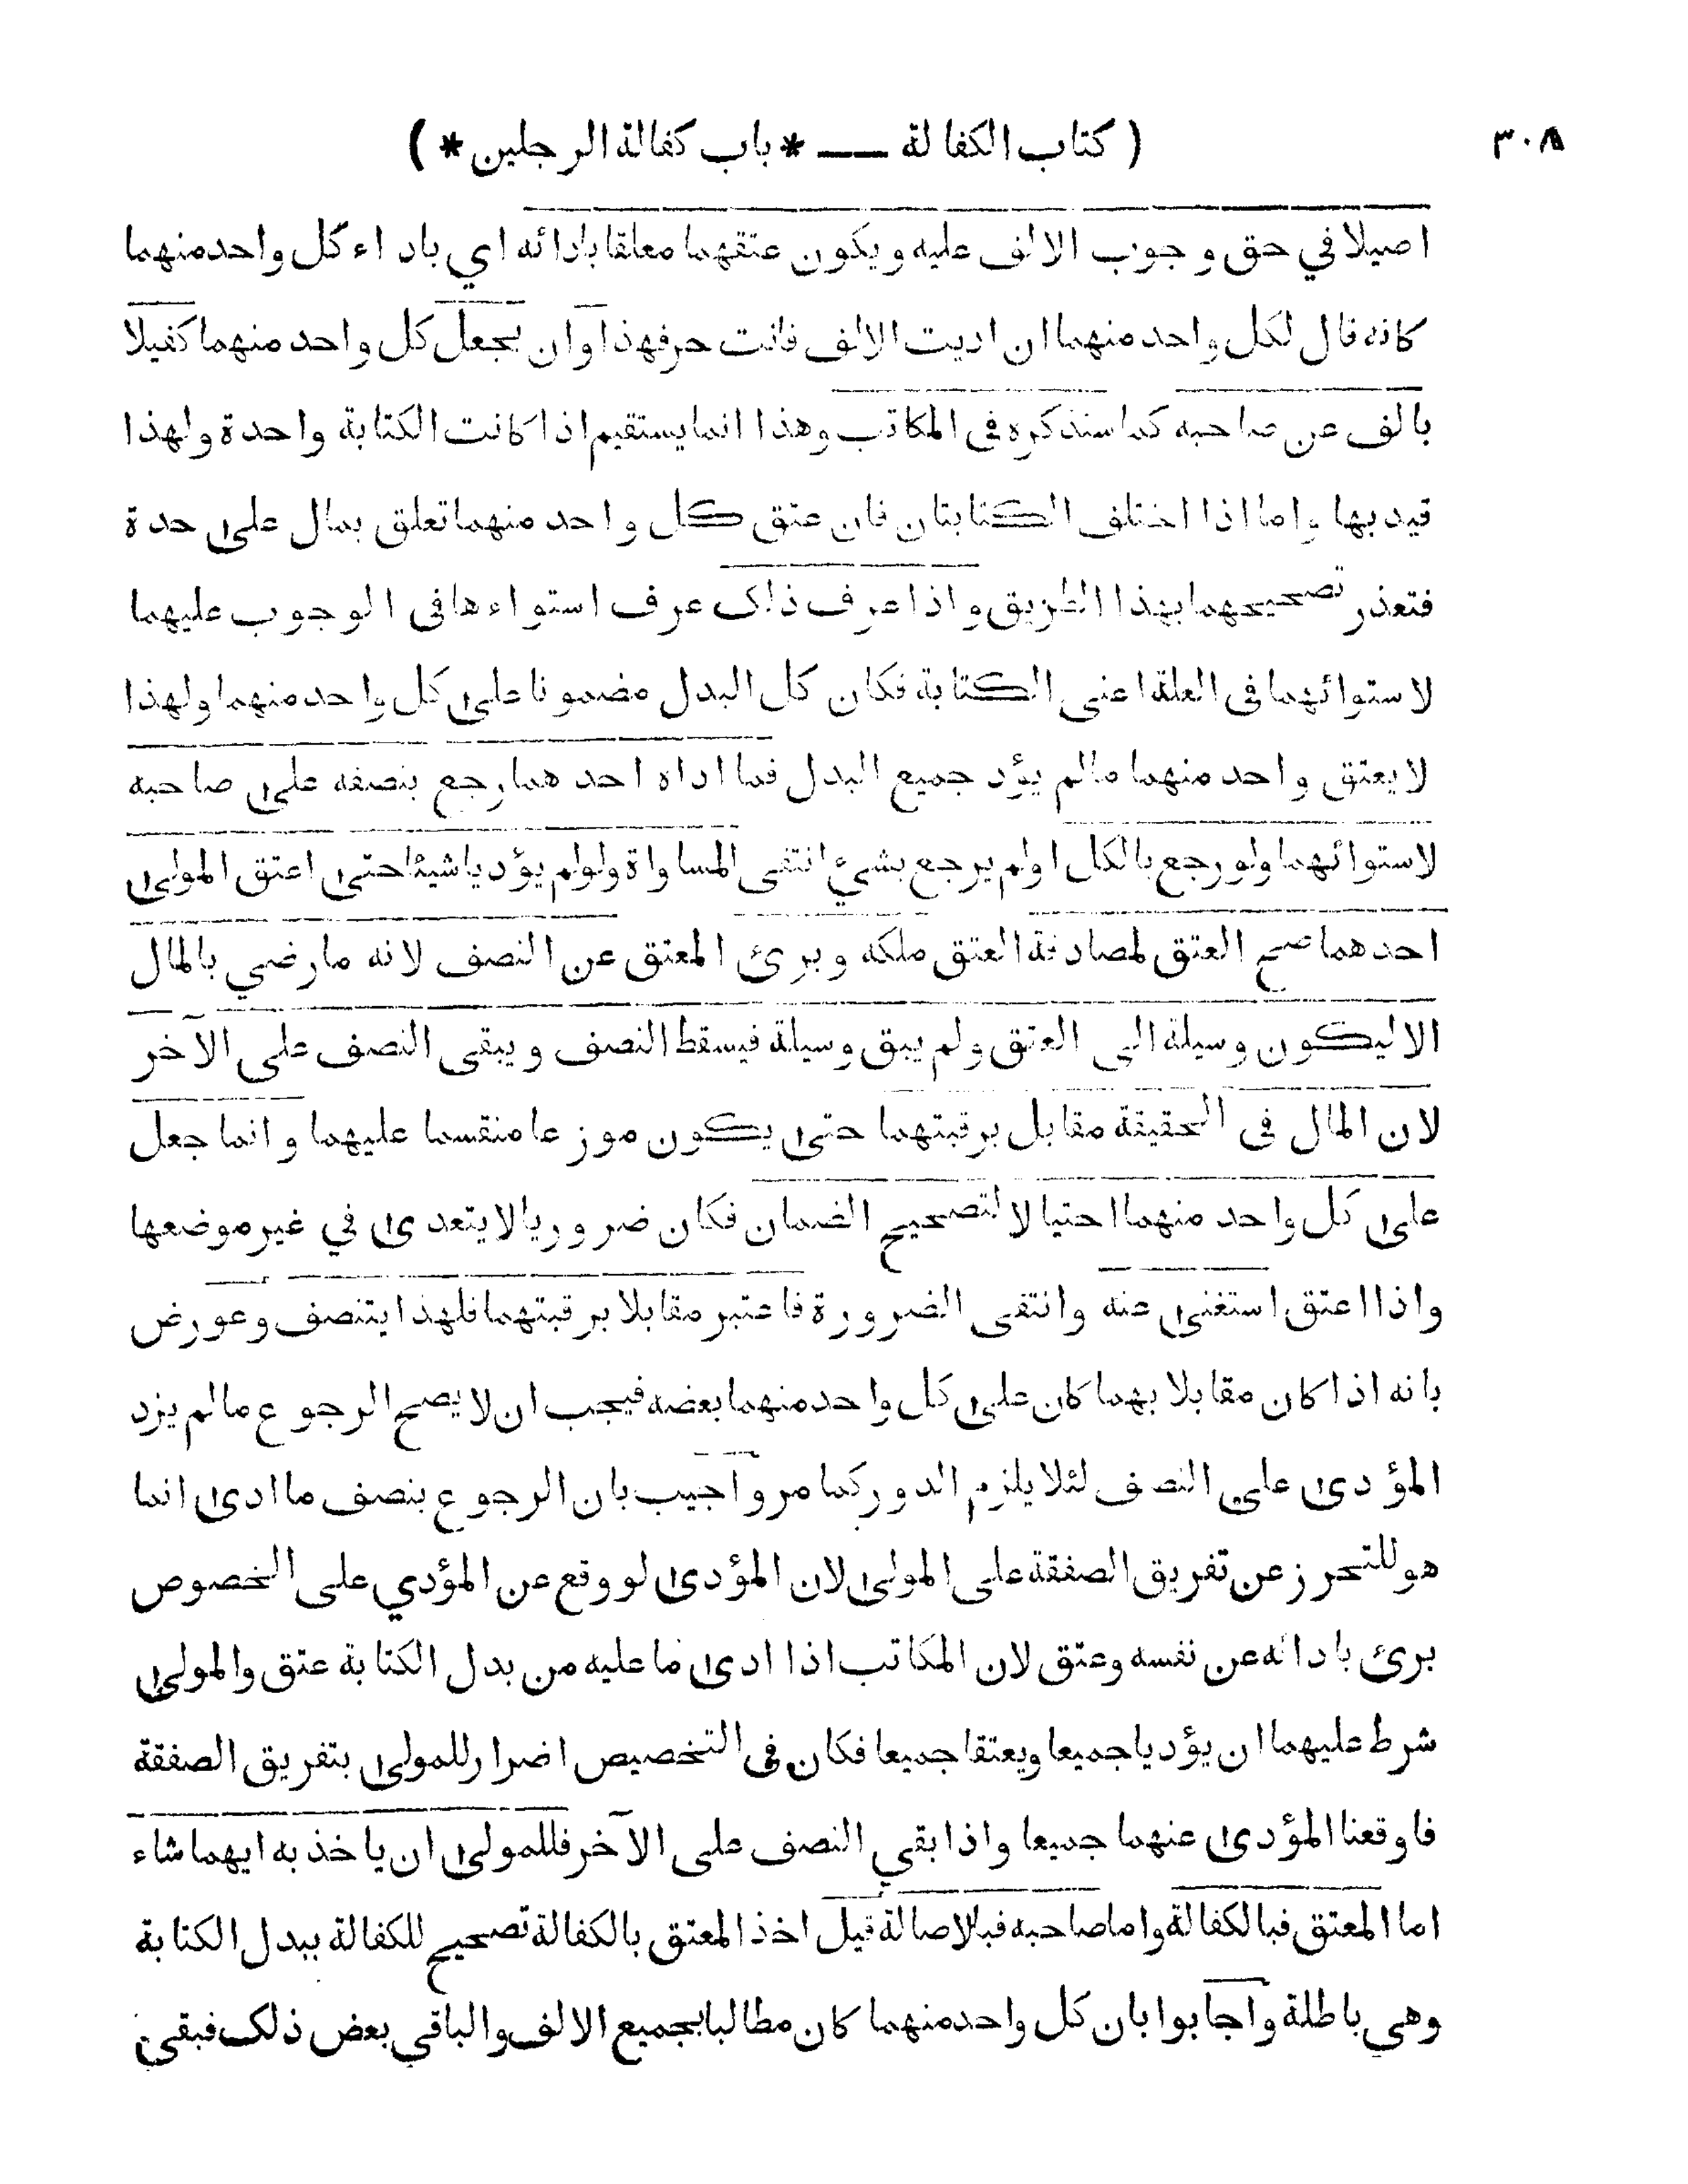 ٣٠٨
( كتاب الكفالة — * باب كفالة الرجلين * )
اصيلا في حق وجوب الالف عليه ويكون عتقهما معلقا بادائه اي باداء كل واحد منهما
كانه قال لكل واحد منهما ان اديت الالف فانت حر فهذا وان يجعل كل واحد منهما كفيلا
بالف عن صاحبه كما سنذكره فى المكاتب وهذا انما يستقيم اذا كانت الكتابة واحدة ولهذا
قيد بها واما اذا اختلف الكتابتان فان عتق كل واحد منهما تعلق بمال على حدة
فتعذر تصحيحهما بهذا الطريق واذا عرف ذلك عرف استواءهما فى الوجوب عليهما
لاستوائهما فى العلة اعنى الكتابة فكان كل البدل مضمونا على كل واحد منهما ولهذا
لا يعتق واحد منهما مالم يؤد جميع البدل فما اداه احدهما رجع بنصفه على صاحبه
لاستوائهما ولو رجع بالكل اولم يرجع بشيء انتفى المساواة ولولم يؤديا شيئا حتى اعتق المولى
احدهما صح العتق لمصادفة العتق ملكه وبرئ المعتق عن النصف لانه مارضي بالمال
الا ليكون وسيلة الى العتق ولم يبق وسيلة فيسقط النصف ويبقى النصف على الآخر
لان المال فى الحقيقة مقابل برقبتهما حتى يكون موزعا منقسما عليهما وانما جعل
على كل واحد منهما احتيالا لتصحيح الضمان فكان ضروريا لا يتعدى في غير موضعها
واذا اعتق استغنى عنه وانتفى الضرورة فاعتبر مقابلا برقبتهما فلهذا يتنصف وعورض
بانه اذا كان مقابلا بهما كان على كل واحد منهما بعضه فيجب ان لا يصح الرجوع مالم يزد
المؤدى على النصف لئلا يلزم الدور كما مر واجيب بان الرجوع بنصف ما ادى انما
هو للتحرز عن تفريق الصفقة على المولى لان المؤدى لو وقع عن المؤدي على الخصوص
برئ بادائه عن نفسه وعتق لان المكاتب اذا ادى ما عليه من بدل الكتابة عتق والمولى
شرط عليهما ان يؤديا جميعا ويعتقا جميعا فكان فى التخصيص اضرار للمولى بتفريق الصفقة
فاوقعنا المؤدى عنهما جميعا واذا بقي النصف على الآخر فللمولى ان ياخذ به ايهما شاء
اما المعتق فبالكفالة واما صاحبه فبالاصالة قيل اخذ المعتق بالكفالة تصحيح للكفالة ببدل الكتابة
وهي باطلة واجابوا بان كل واحد منهما كان مطالبا بجميع الالف والباقي بعض ذلك فبقى